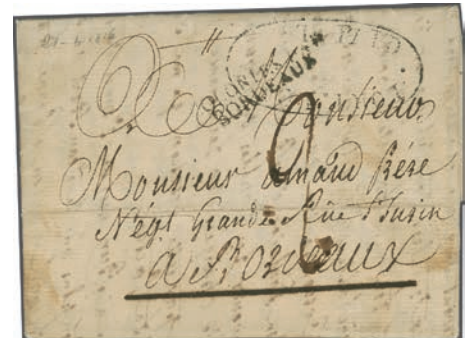 COLONIES
BORDEAUX
A Monsieur
Monsieur amand frére
Nég.t Grande Rüe S.t Surin
a Bordeaux
2